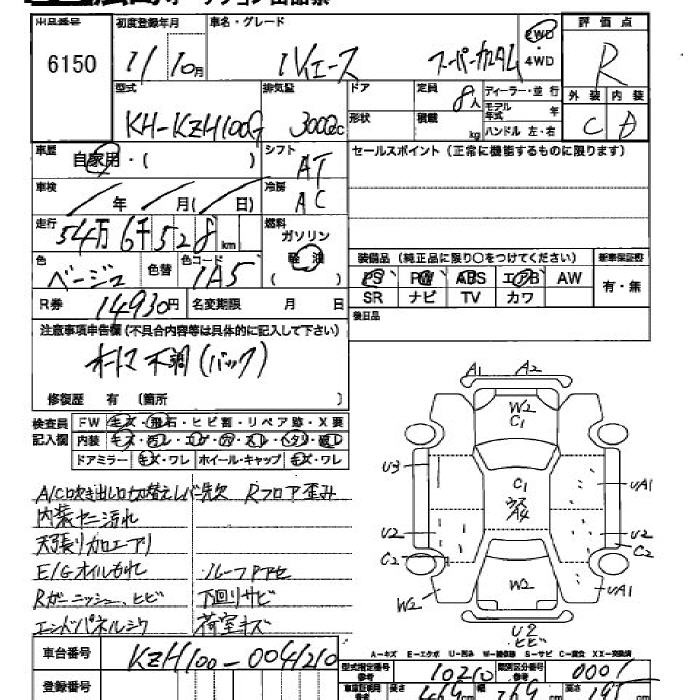 出品番号 初度登録年月 車名・グレード 評価点
6150 11/10月 ハイエース スーパーカスタム 2WD・4WD R
型式 排気量 ドア 定員 ディーラー・並行 外装 内装
KH-KZH100G 3000cc 8人 モデル年式 年 C D
形状 積載 kg ハンドル 左・右
車歴 自家用・( ) シフト AT セールスポイント(正常に機能するものに限ります)
車検 年 月( 日) 冷房 AC
走行 54万6千528km 燃料 ガソリン 軽油 ( )
色 ベージュ 色替 色コード 1A5 装備品(純正品に限り○をつけてください) 新車保証書
PS PW ABS エアB AW 有・無
SR ナビ TV カワ
R券 14930円 名変期限 月 日 後日品
注意事項申告欄(不具合内容等は具体的に記入して下さい)
オートマ不調(バック)
修復歴 有 〔箇所 〕
検査員記入欄 FW キズ・飛石・ヒビ割・リペア跡・X要
内装 キズ・汚レ・コゲ・穴・スレ・ヘタリ・破レ
ドアミラー キズ・ワレ ホイール・キャップ キズ・ワレ
A1 A2
W2
C1
U3 C1 UA1
A4
U2 U2
C2 C2
W2 W2 UA1
U2
ヒビ
A/C吹き出し口切替えレバー先欠 Rフロア歪み
内装ヤニ汚れ
天張り加工アリ
E/Gオイルもれ ルーフPアセ
Rガーニッシュ、ヒビ 下回りサビ
エンドパネルシワ 荷室キズ
A-キズ E-エクボ U-凹み W-補修跡 S-サビ C-腐食 XX-交換済
車台番号 KZH100-0041210 型式指定番号 10210 類別区分番号 0001
登録番号 長さ 469cm 幅 169cm 高さ 195cm